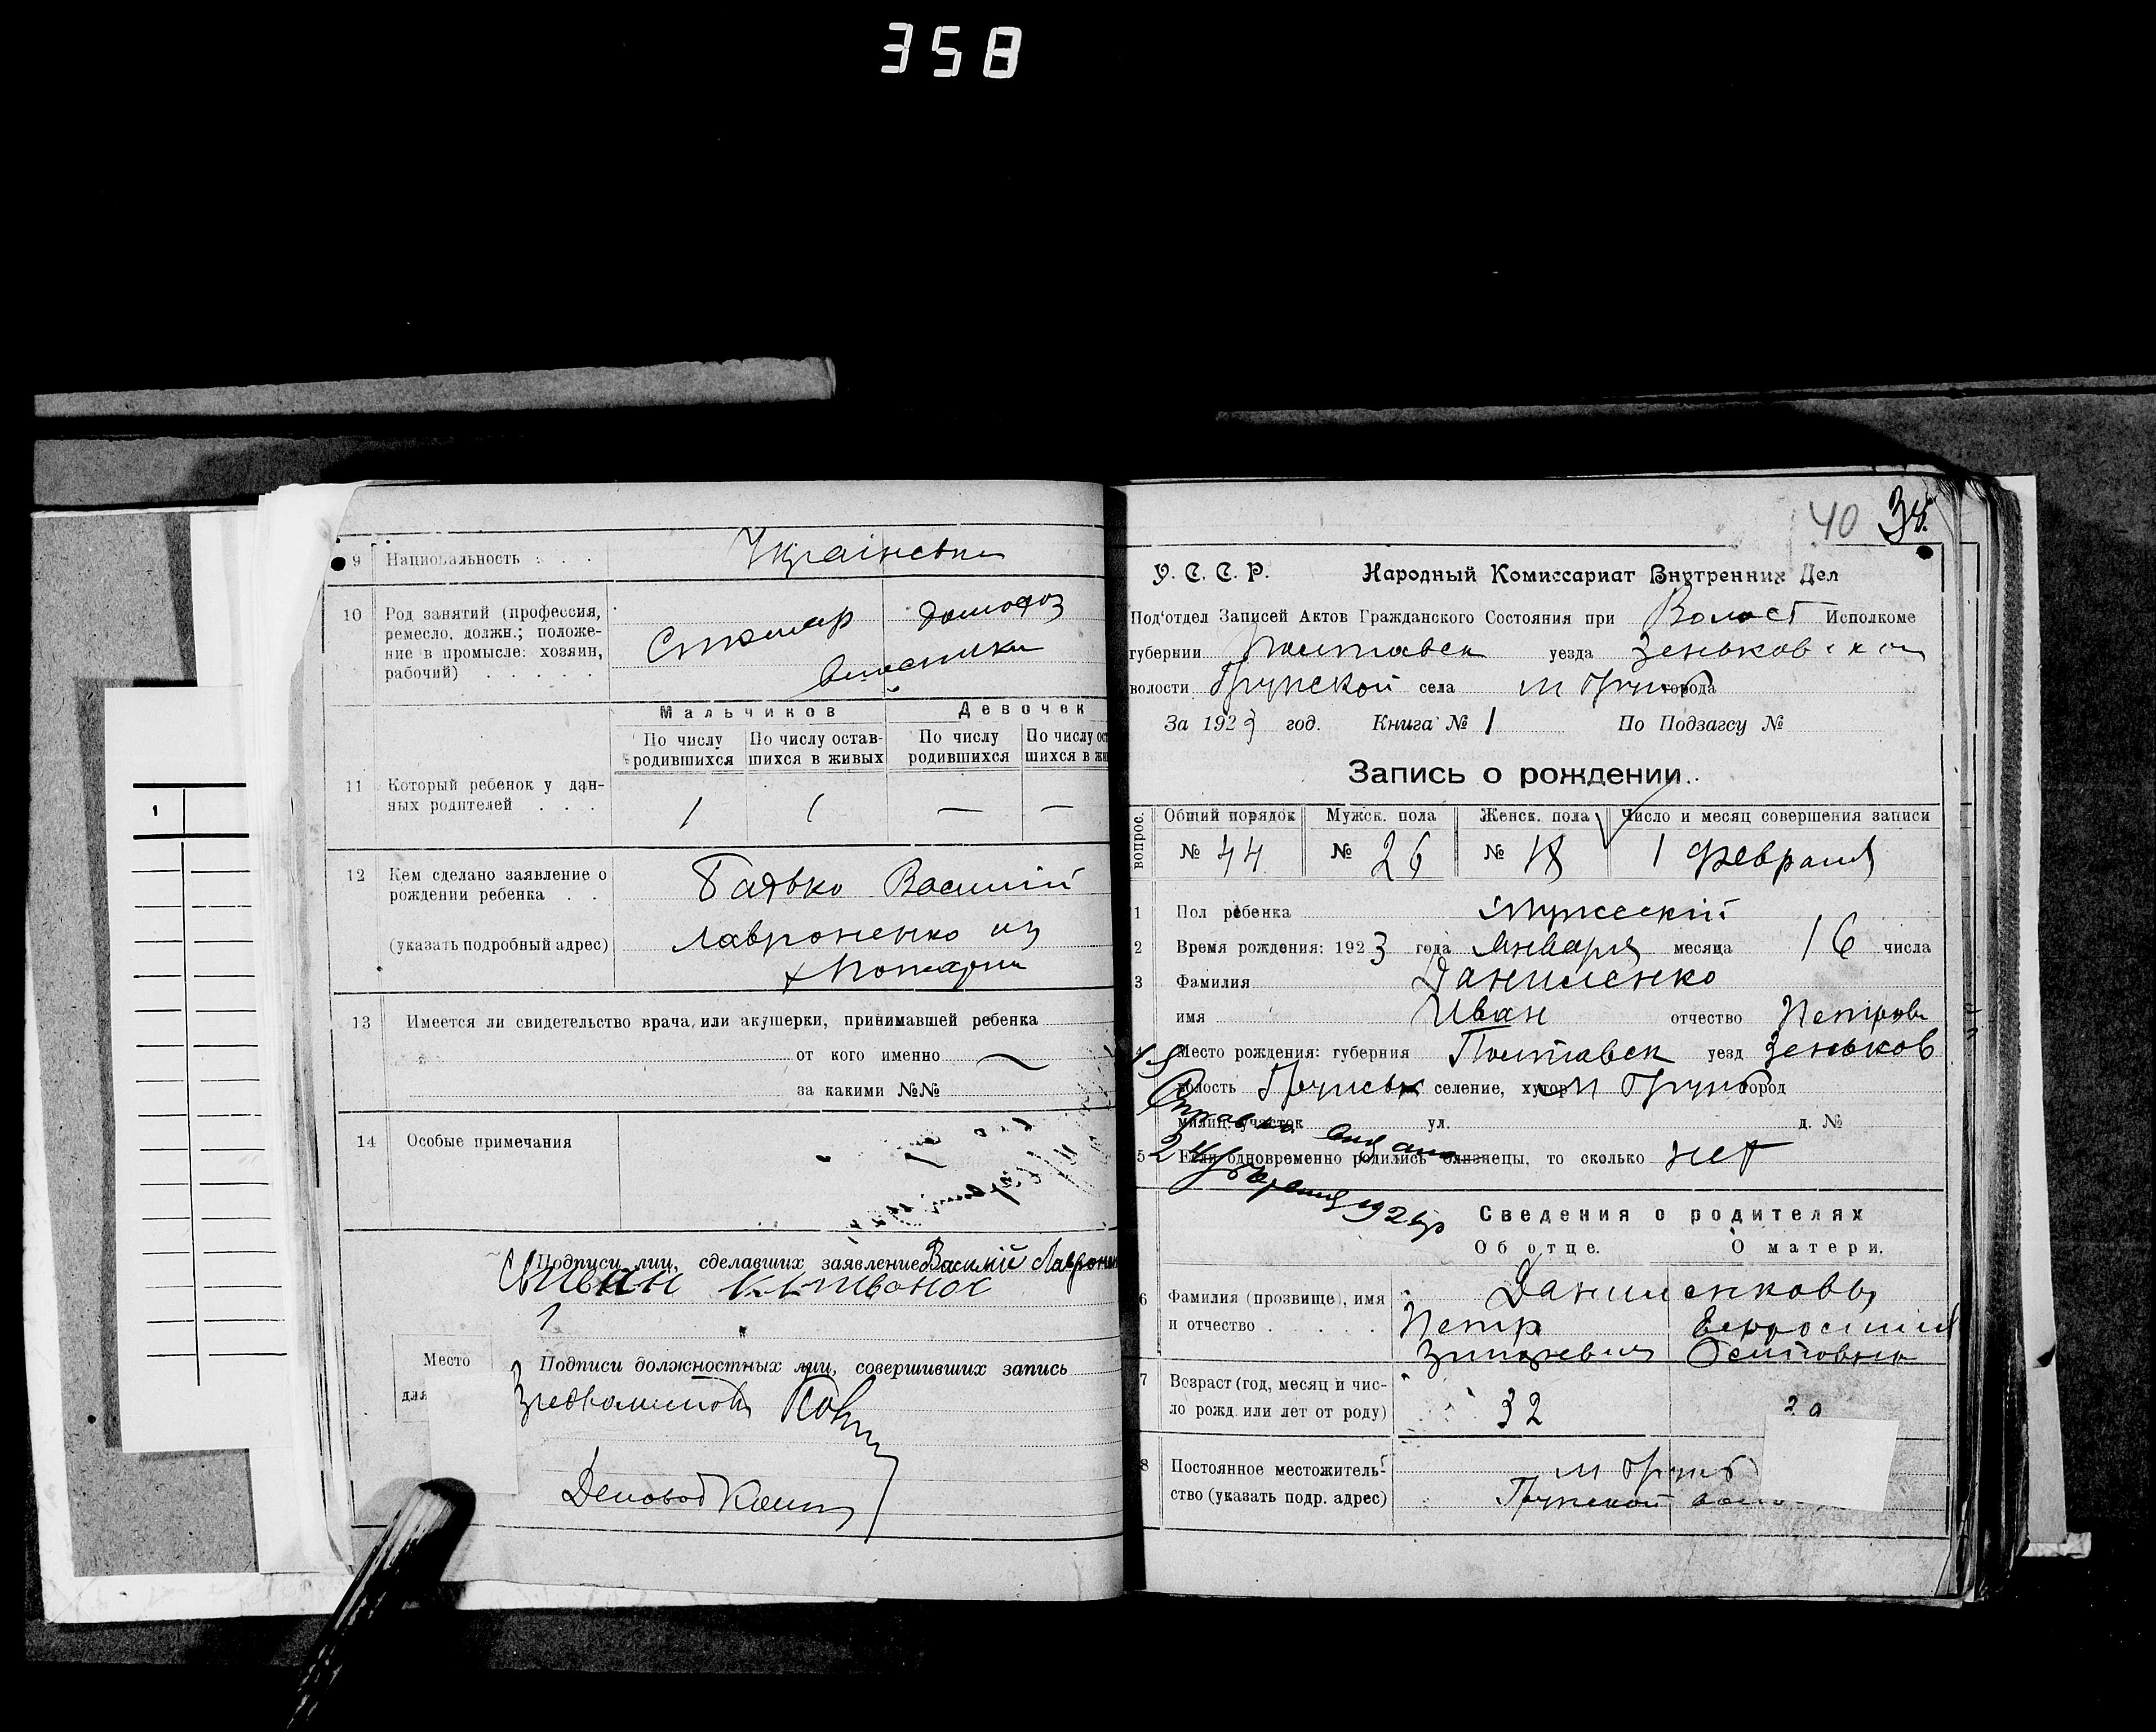 358
9 Национальность . . . Українськи
10 Род занятий (профессия,
ремесло, должн.; положе-
ние в промысле: хозяин,
рабочий) . . . . .
Столяр
11 Который ребенок у дан-
ных родителей . . .
Мальчиков Девочек
По числу родившихся По числу остав-шихся в живых По числу родившихся По числу ост шихся в жи
1 1 — —
12 Кем сделано заявление о
рождении ребенка . .
Батько Василій
(указать подробный адрес) Лавроненко из
13 Имеется ли свидетельство врача или акушерки, принимавшей ребенка
от кого именно —
за какими №№
14 Особые примечания
Подписи лиц, сделавших заявление Василій Лаврон
Подписи должностных лиц, совершивших запись
Место
для
Деловод
40 38.
У. С. С. Р. Народный Комиссариат Внутренних Дел
Под'отдел Записей Актов Гражданского Состояния при Волост Исполкоме
губернии Полтавск уезда Зеньковской
волости Грунской села м Грунь города
За 1923 год. Книга № 1 По Подзагсу №
Запись о рождении.
вопрос. Общий порядок Мужск. пола Женск. пола Число и месяц совершения записи
№ 44 № 26 № 18 1 Февраля
1 Пол ребенка Мужеский
2 Время рождения: 1923 года Января месяца 16 числа
3 Фамилия Даниленко
имя Иван отчество Петрови
4 Место рождения: губерния Полтавск уезд Зеньков
волость Грунськ селение, хутор м Грунь город
милиц. участок ул. д. №
5 Если одновременно родились близнецы, то сколько нет
Сведения о родителях
Об отце. О матери.
6 Фамилия (прозвище), имя
и отчество . . . .
Даниленковы
Петр
7 Возраст (год, месяц и чис-
ло рожд. или лет от роду)
32
8 Постоянное местожитель-
ство (указать подр. адрес)
м Грунь
Грунской
1